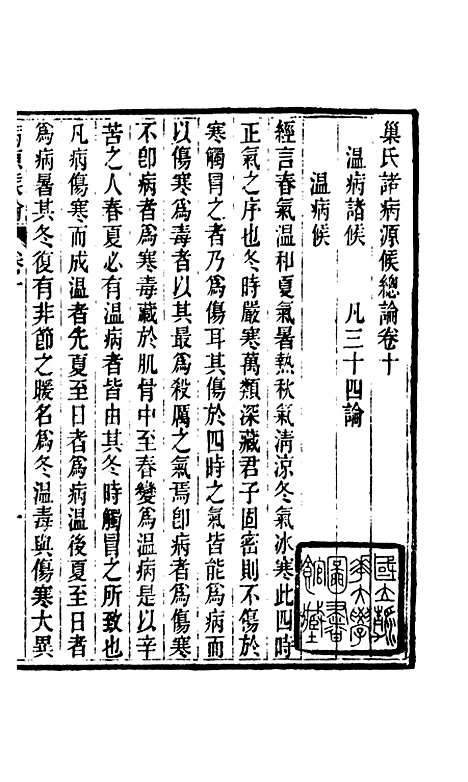 巢氏諸病源候總論卷十
溫病諸候　凡三十四論
溫病候
經言春氣溫和夏氣暑熱秋氣淸凉冬氣冰寒此四時
正氣之序也冬時嚴寒萬類深藏君子固密則不傷於
寒觸冒之者乃爲傷耳其傷於四時之氣皆能爲病而
以傷寒爲毒者以其最爲殺厲之氣焉卽病者爲傷寒
不卽病者爲寒毒藏於肌骨中至春變爲溫病是以辛
苦之人春夏必有溫病者皆由其冬時觸冒之所致也
凡病傷寒而成溫者先夏至日者爲病溫後夏至日者
爲病暑其冬復有非節之暖名爲冬溫毒與傷寒大異